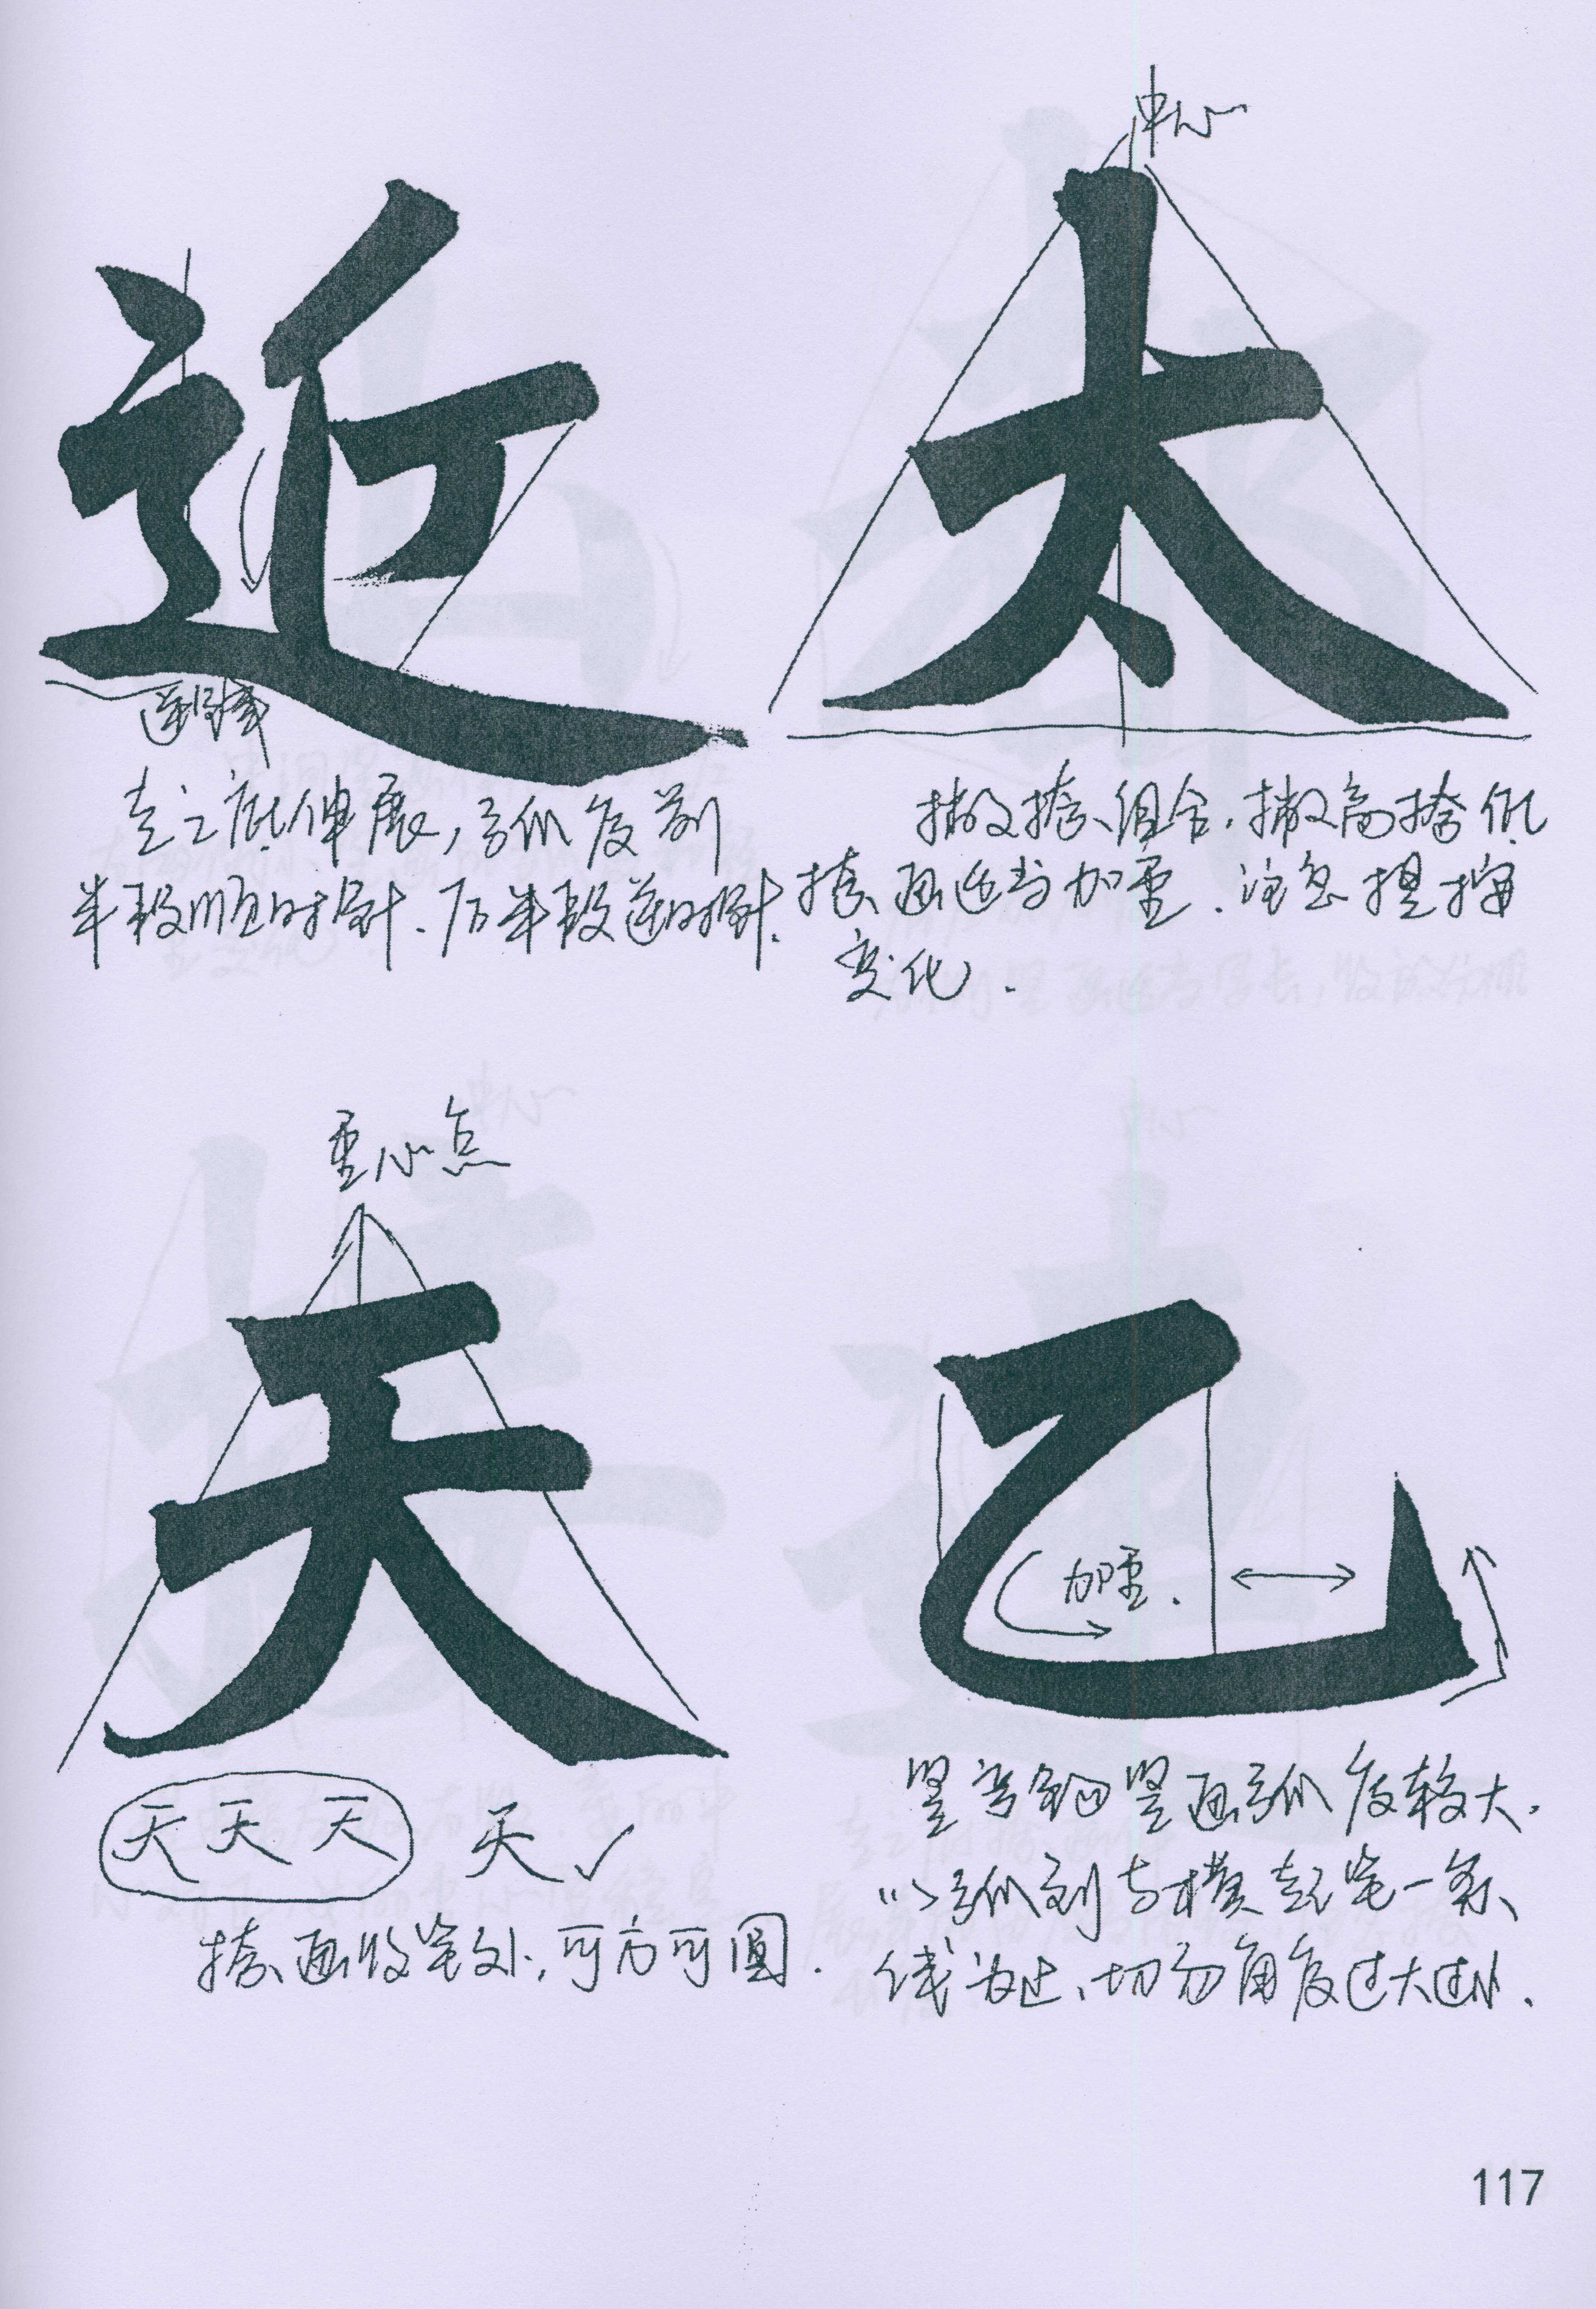 中心
近
太
走之底伸展，弧度前
半段顺时针．后半段逆时针．
撇捺组合．撇高捺低．
捺画适当加重．注意提按
变化．
重心点
天
乙
加重．
天天天 天✓
捺画收笔处，可方可圆．
竖弯钩竖画弧度较大．
以弧到与横起笔一条
线为止，切勿角度过大过小．
117